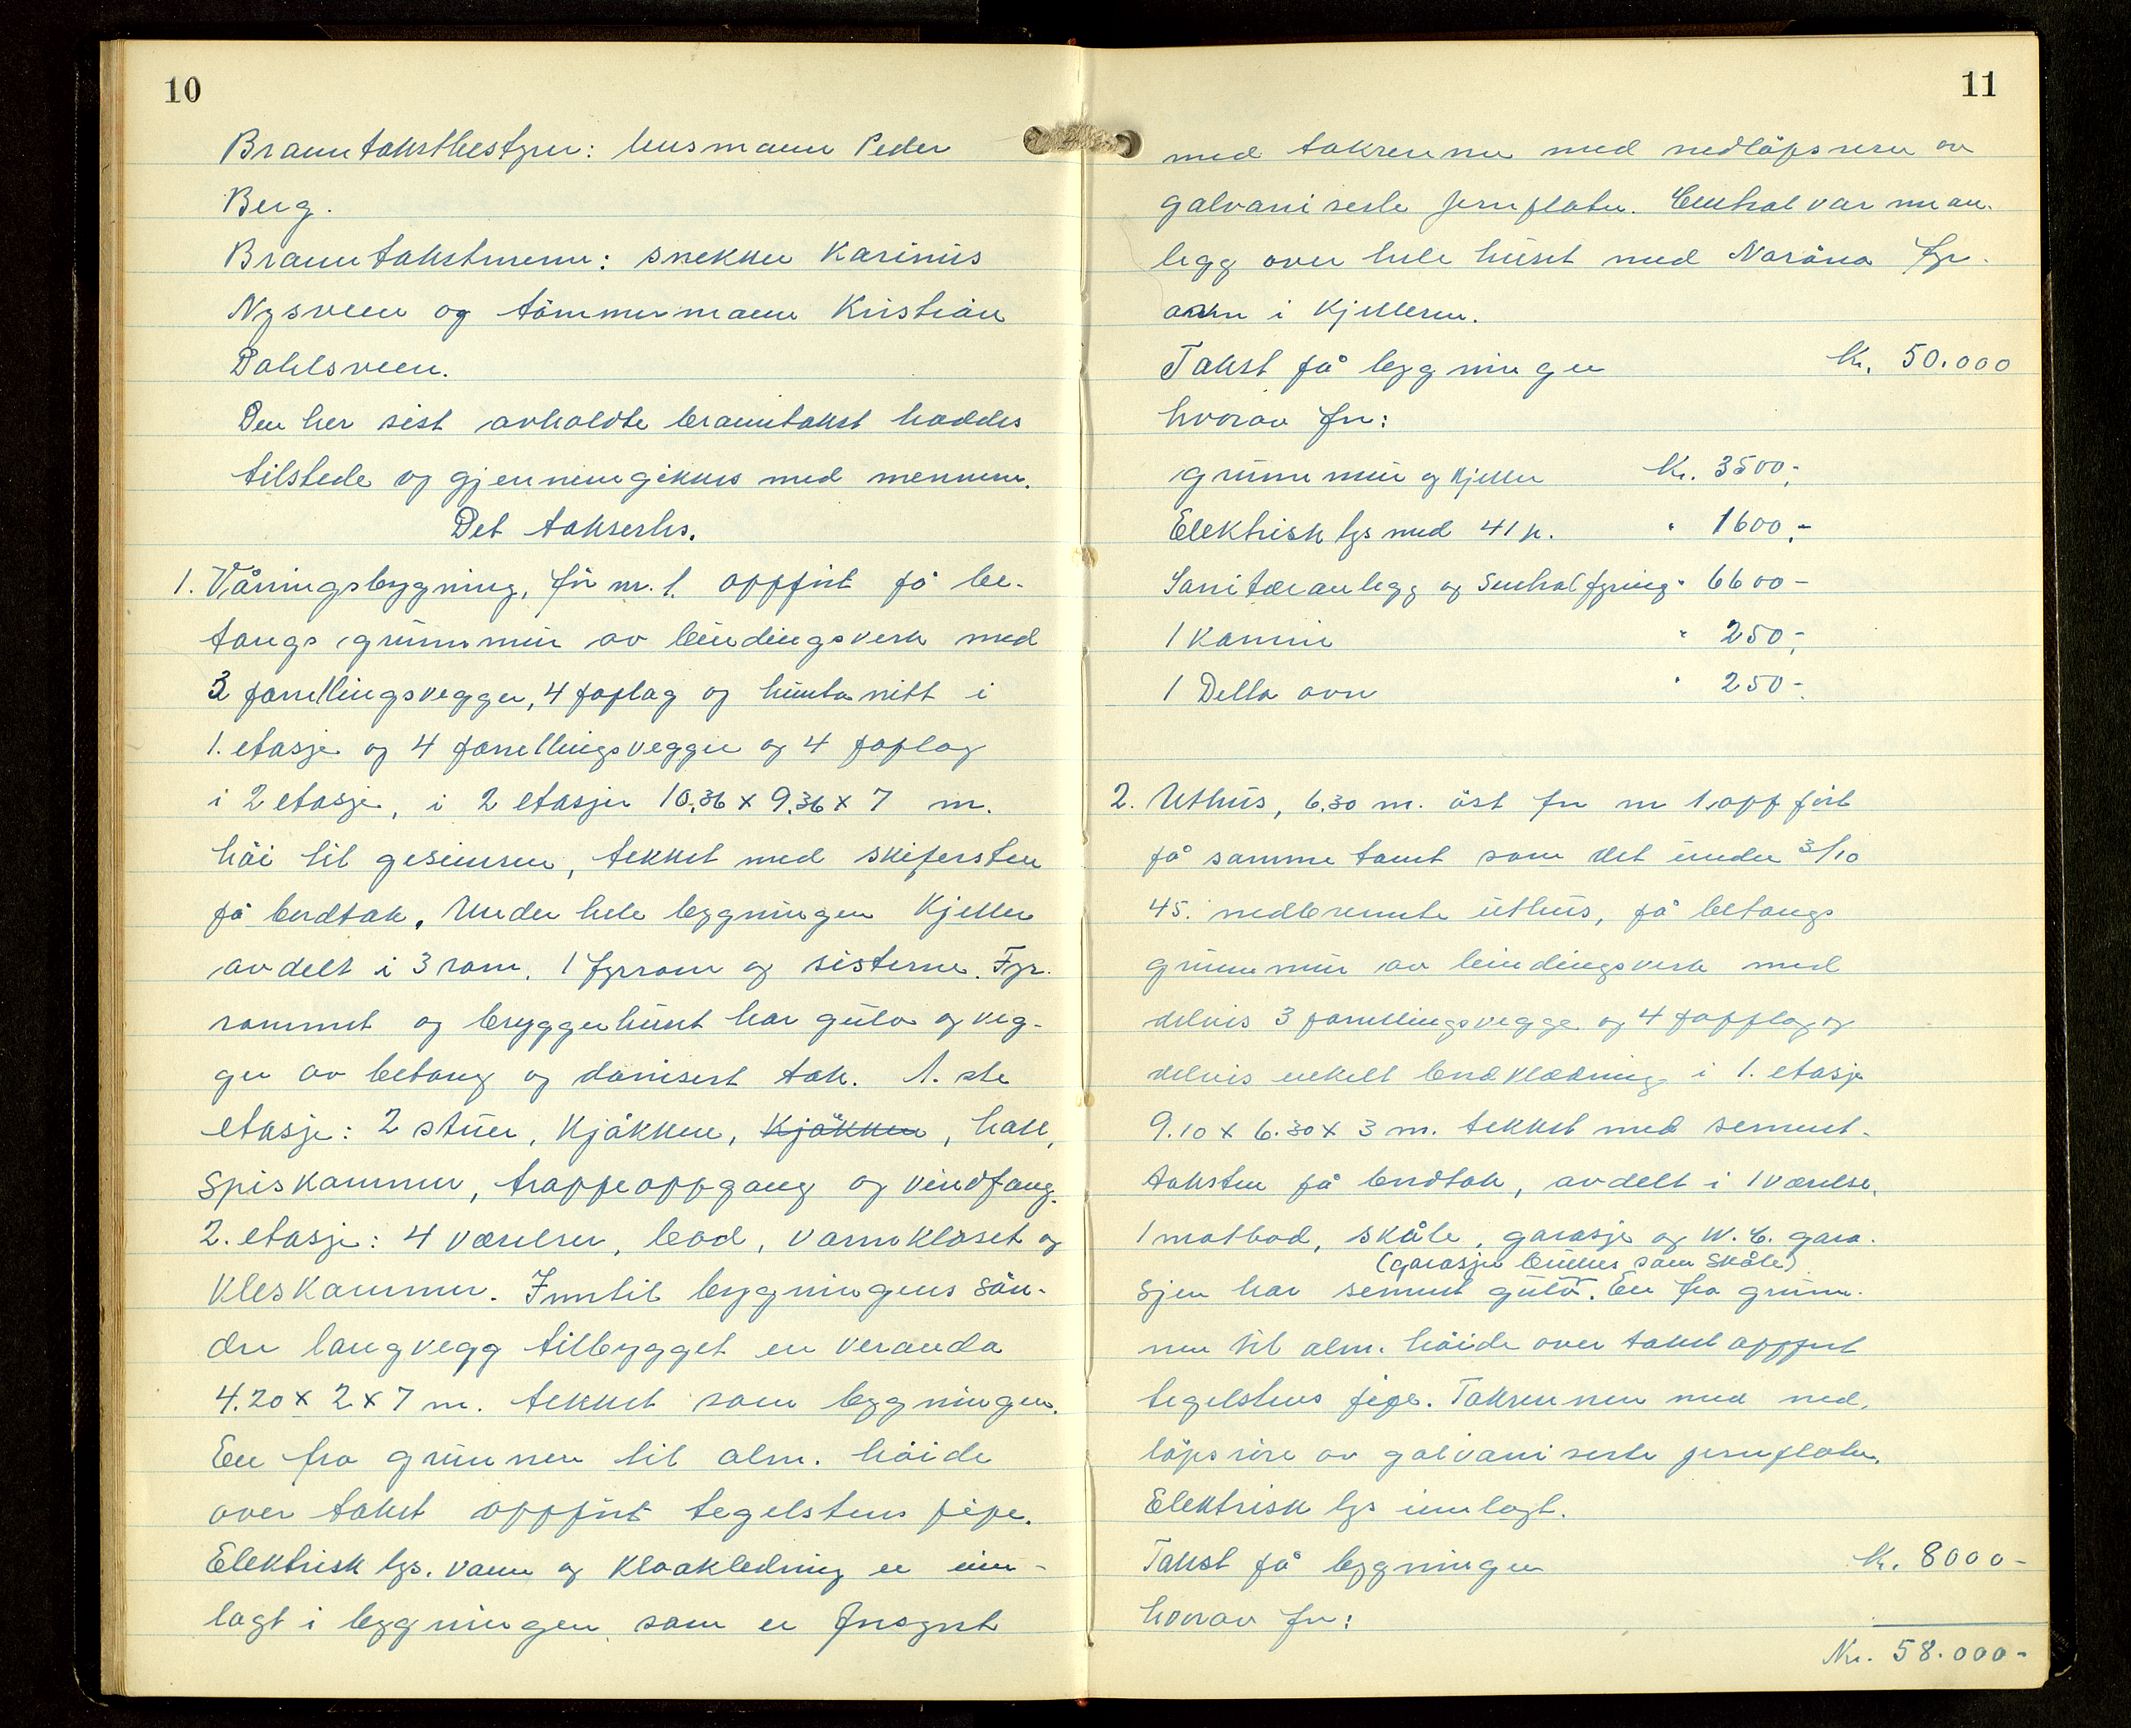 10
Branntakstbestyrer: husmann Peder
Berg.
Branntakstmenn: snekker Karinius
Nysveen og tömmermann Kristian
Dahlsveen.
Den her sist avholdte branntakst haddes
tilstede og gjennemgikkes med mennene.
Det taksertes.
1. Våningsbygning, för nr. 1. oppfört på be-
tongs grunnmur av bindingsverk med
3 panellingsvegger, 4 paplag og huntonitt i
1. etasje og 4 panellingsvegger og 4 paplag
i 2 etasje, i 2 etasjer 10.36 x 9.36 x 7 m.
höi til gesimsen, tekket med skifersten
på bordtak. Under hele bygningen Kjeller
avdelt i 3 rom, 1 fyrrom og sisterne. Fyr-
rommet og bryggerhuset har gulv og veg-
ger av betong og   tak. 1.ste
etasje: 2 stuer, Kjökken, Kjökken, hall,
Spiskammer, trappeoppgang og vindfang.
2. etasje: 4 værelser, bad, vannkloset og
Kleskammer. Inntil bygningens sön-
dre langvegg tilbygget en veranda
4.20 x 2 x 7 m. tekket som bygningen.
En fra grunnen til alm. höide
over taket oppfört tegelstens pipe.
Elektrisk lys. vann og Kloakledning er inn-
lagt i bygningen som er forsynt
11
med takrenner med nedlöpsrör av
galvaniserte jernplater. Centralvarmean-
legg over hele huset med Norona fyr-
ovn i Kjelleren.
Takst på bygningen Kr. 50.000
hvorav for:
grunnmur og Kjeller Kr. 3500,-
Elektrisk lys med 41 p. " 1600,-
Sanitæranlegg og Sentralfyring " 6600-
1 Kamin " 250,-
1 Della ovn " 250-
2. Uthus, 6.30 m. öst for nr 1, oppfört
på samme tomt som det under 3/10
45. nedbrennte uthus, på betongs
grunnmur av bindingsverk med
delvis 3 panellingsvegge og 4 papplag og
delvis enkelt bordklædning i 1. etasje
9.10 x 6.30 x 3 m. tekket med sement-
taksten på bordtak, avdelt i 1 værelse,
1 matbod, skåle, garasje og W.C. gara-
(garasjen brukes som Skåle)
sjen har sement gulv. En fra grunn-
nen til alm. höide over taket oppfört
tegelstens pipe. Takrennen med ned-
löpsröre av galvaniserte jernplater.
Elektrisk lys innlagt.
Takst på bygningen Kr. 8000-
hvorav for:
Kr. 58.000-